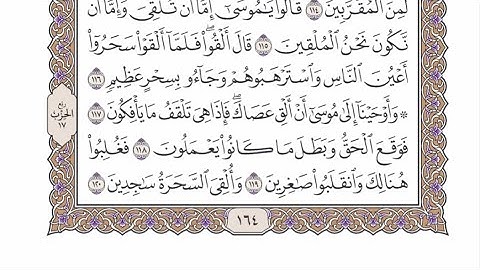 لَمِنَ ٱلْمُقَرَّبِينَ ١١٤ قَالُوا۟ يَـٰمُوسَىٰٓ إِمَّآ أَن تُلْقِىَ وَإِمَّآ أَن
نَّكُونَ نَحْنُ ٱلْمُلْقِينَ ١١٥ قَالَ أَلْقُوا۟ ۖ فَلَمَّآ أَلْقَوْا۟ سَحَرُوٓا۟
أَعْيُنَ ٱلنَّاسِ وَٱسْتَرْهَبُوهُمْ وَجَآءُو بِسِحْرٍ عَظِيمٍ ١١٦
۞ وَأَوْحَيْنَآ إِلَىٰ مُوسَىٰٓ أَنْ أَلْقِ عَصَاكَ ۖ فَإِذَا هِىَ تَلْقَفُ مَا يَأْفِكُونَ ١١٧
فَوَقَعَ ٱلْحَقُّ وَبَطَلَ مَا كَانُوا۟ يَعْمَلُونَ ١١٨ فَغُلِبُوا۟
هُنَالِكَ وَٱنقَلَبُوا۟ صَـٰغِرِينَ ١١٩ وَأُلْقِىَ ٱلسَّحَرَةُ سَـٰجِدِينَ ١٢٠
ربع
الحزب
١٧
١٦٤